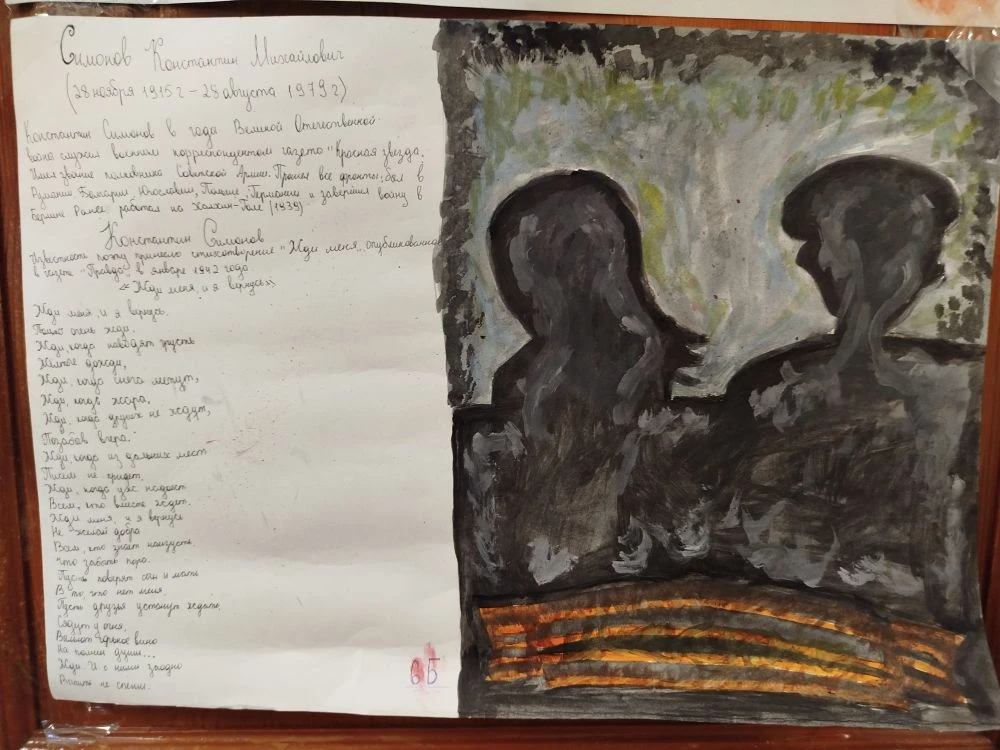 Симонов Константин Михайлович
(28 ноября 1915 г – 28 августа 1979 г)
Константин Симонов в года Великой Отечественной
война служил военном корреспондентом газето "Красная звезда.
Имел звание полковника Советской Армии. Прошел все фронты, был в
Румынии, Болгарии, Югославии, Польше, Германии и завершил войну в
берлине Ранее работал на Халхин-Голе (1939)
Константин Симонов
Известность поэту принесло стихотворение "Жди меня", опубликованное
в газете "Правда", в январе 1942 года.
"Жди меня, и я вернусь"
Жди меня, и я вернусь.
Только очень жди.
Жди, когда наводят грусть
Жёлтые дожди,
Жди, когда снега метут,
Жди, когда жара,
Жди, когда других не ждут,
Позабыв вчера.
Жди, когда из дальних мест
Писем не придет,
Жди, когда уж надоест
Всем, кто вместе ждет.
Жди меня, и я вернусь
Не желай добра
Всем, кто знает наизусть,
Что забыть пора.
Пусть поверят сын и мать
В то, что нет меня
Пусть друзья устанут ждать,
Сядут у огня,
Выпьют горькое вино
На помин души...
Жди. И с ними заодно
Выпить не спеши.
6Б